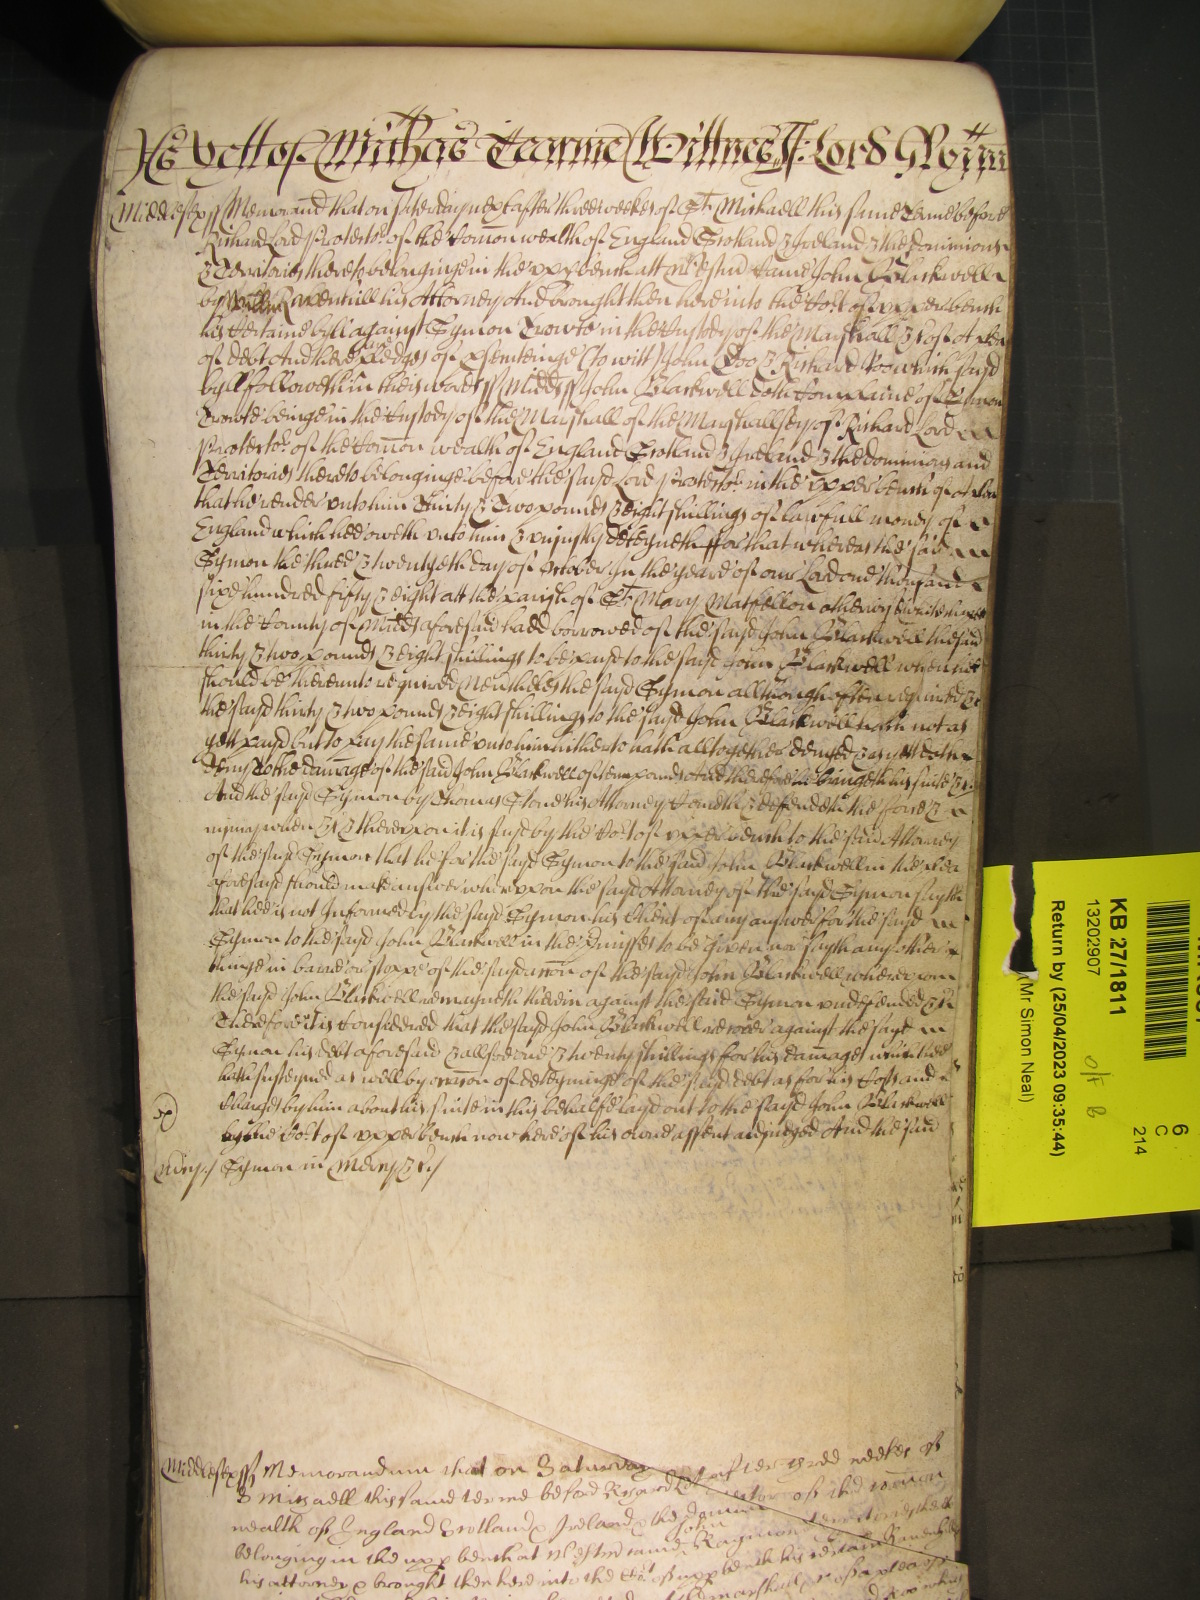 Yett of Michas Tearme Wittnes Lord
Middlesex ss Memorand that on Saterday next after three weekes of St Michaell this same Terme before
Richard Lord Protector of the Comon wealth of England Scotland & Ireland & the Dominions
& Territories thereto belonginge in the upp bench att Westm came John Blackwell
by Ravenhill his Attorney And brought then here into the Cort of upper bench
his certaine bill against Symon Crowte in the Custody of the Marshall &c of a plea
of debt And there are pledges of prsecuteinge (to witt) John Doo & Richard Roo which sayd
bill followeth in theis words ss Midds ss John Blackwell doth Complaine of Symon
Crowte beinge in the Custody of the Marshall of the Marshallsey of Richard Lord
Protector of the Comon wealth of England Scotland & Ireland & the dominions and
Territories thereto belonginge before the sayd Lord Protector in the upper bench of a plea
that he render unto him Thirty & Two pounds & eight shillings of lawfull money of
England which hee oweth unto him & uniustly deteyneth ffor that whereas the said
Symon the three & twentyeth day of October In the yeare of our Lord one thousand
sixe hundred fifty & eight att the parish of St Mary Matfellon otherwise
in the County of Midds aforesaid hadd borrowed of the sayd John Blackwell the said
thirty & two pounds & eight shillings to be payd to the sayd John Blackwell when hee
should be thereunto required Neverthelesse the sayd Symon allthough often required &c
the sayd thirty & two pounds & eight shillings to the sayd John Blackwell hath not as
yett payd but to pay the same unto him hitherto hath alltogether denyed & as yett doth
deny To the damage of the said John Blackwell of tenn pounds And therefore he bringeth his suite &c
And the sayd Symon by Thomas Stone his Attorney Cometh & defendeth the force &
iniury when &c & thereupon it is sayd by the Cort of upper bench to the said Attorney
of the sayd Symon that he for the sayd Symon to the said John Blackwell in the plea
aforesayd should make answer whereupon the sayd Attorney of the sayd Symon sayth
that hee is not Informed by the sayd Symon his Client of any answer for the sayd
Symon to the sayd John Blackwell in the Premisses to be given nor sayth any other
thinge in barre or stoppe of the sayd accon of the sayd John Blackwell whereupon
the sayd John Blackwell remayneth therein against the said Symon undefended &c
Therefore it is Considered that the sayd John Blackwell recover against the sayd
Symon his debt aforesaid & allsoe one & twenty shillings for his damages which hee
hath susteyned as well by occasion of deteyninge of the sayd debt as for his Costs and
Charges by him about his suite in this behalfe layd out to the sayd John Blackwell
by the Cort of upper bench now here of his owne assent adiudged And the said
Mercy / Symon in Mercy &c /
Middlesex ss Memorandum that on Saturday next after three weekes of
S Michaell this same terme before Richard Lord Protector of the common
wealth of England Scotland & Ireland & the dominions & territories thereto
belonging in the upp bench at Westm came John
his attorney & brought then here into the Cort of upp bench his certaine
KB 27/1811
13202907
Return by (25/04/2023 09:35:44)
(Mr Simon Neal)
6
C
214